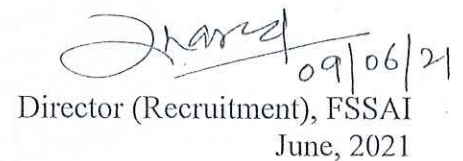 09/06/21
Director (Recruitment), FSSAI
June, 2021